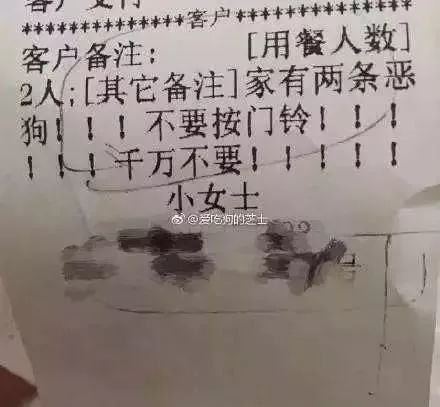 ************客户************
客户备注： [用餐人数]
2人;[其它备注]家有两条恶
狗！！！不要按门铃！！！
！！！千万不要！！！！！
小女士
@爱吃狗的芝士